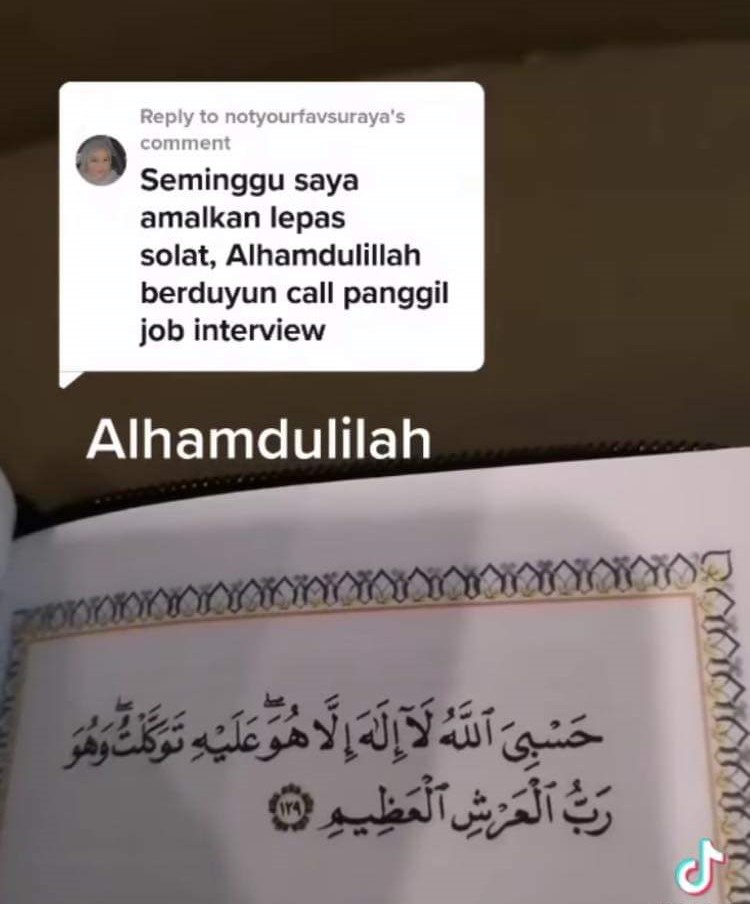 Reply to notyourfavsuraya's
comment
Seminggu saya
amalkan lepas
solat, Alhamdulillah
berduyun call panggil
job interview
Alhamdulilah
حَسْبِيَ ٱللَّهُ لَآ إِلَٰهَ إِلَّا هُوَۖ عَلَيْهِ تَوَكَّلْتُۖ وَهُوَ
رَبُّ ٱلْعَرْشِ ٱلْعَظِيمِ ١٢٩